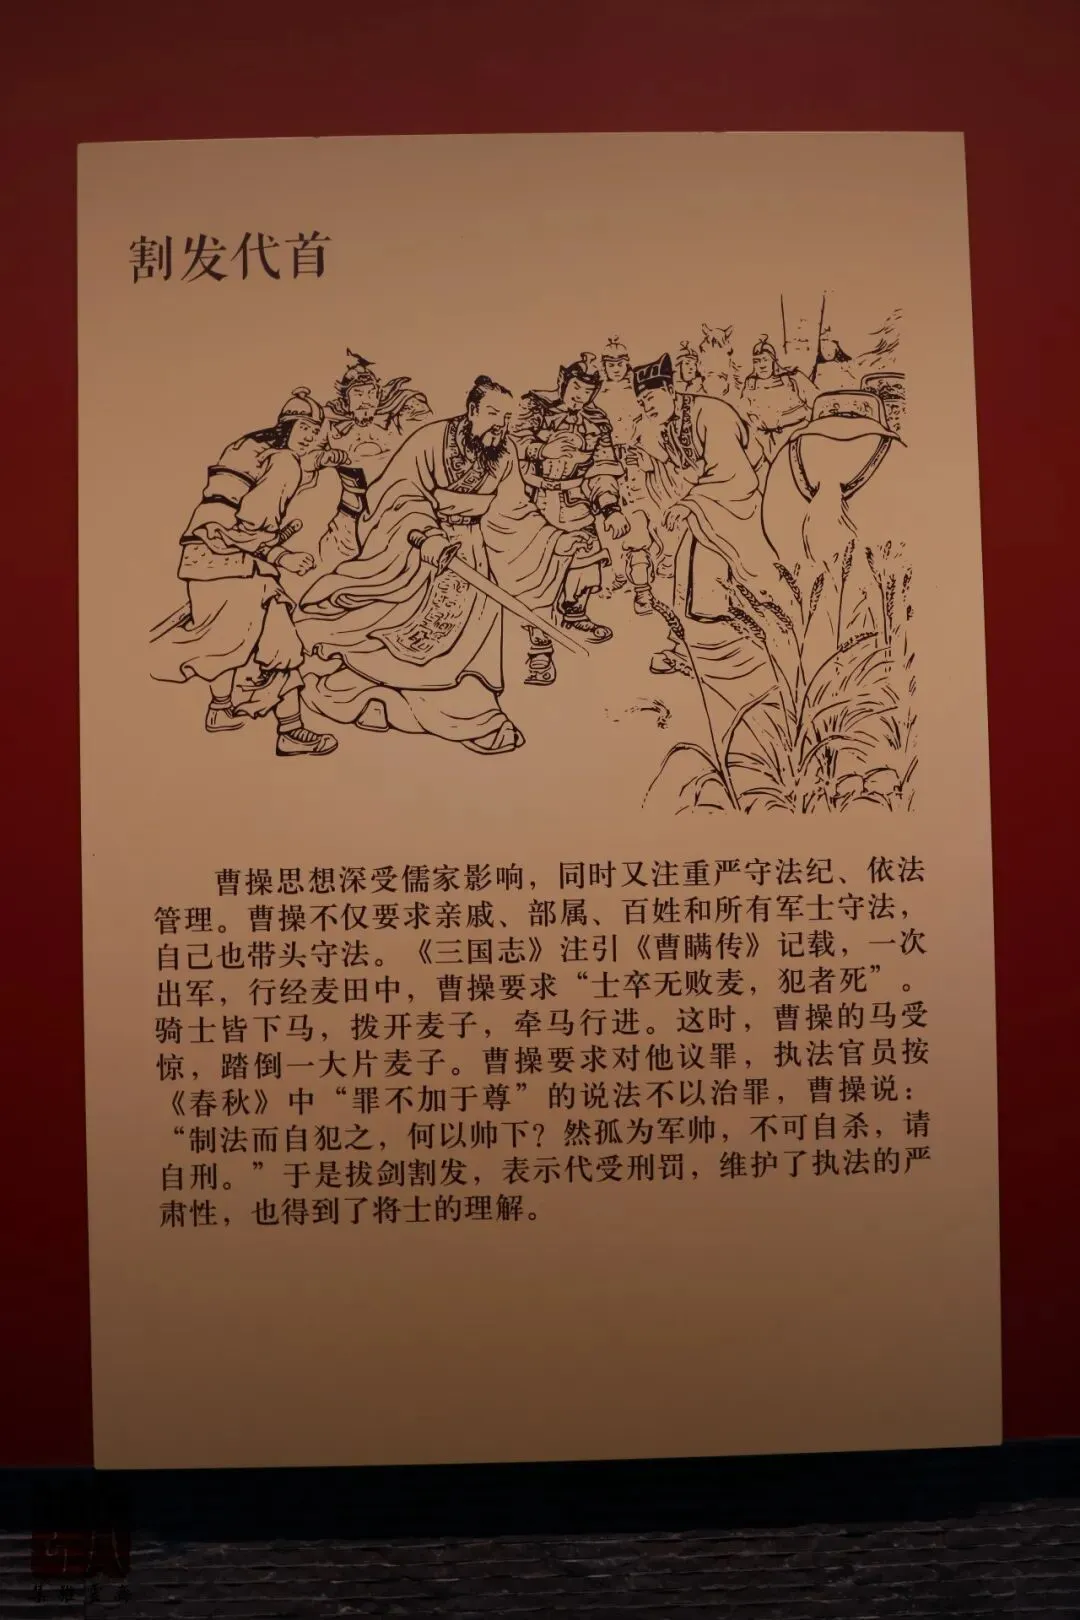 割发代首
曹操思想深受儒家影响，同时又注重严守法纪、依法
管理。曹操不仅要求亲戚、部属、百姓和所有军士守法，
自己也带头守法。《三国志》注引《曹瞒传》记载，一次
出军，行经麦田中，曹操要求“士卒无败麦，犯者死”。
骑士皆下马，拨开麦子，牵马行进。这时，曹操的马受
惊，踏倒一大片麦子。曹操要求对他议罪，执法官员按
《春秋》中“罪不加于尊”的说法不以治罪，曹操说：
“制法而自犯之，何以帅下？然孤为军帅，不可自杀，请
自刑。”于是拔剑割发，表示代受刑罚，维护了执法的严
肃性，也得到了将士的理解。